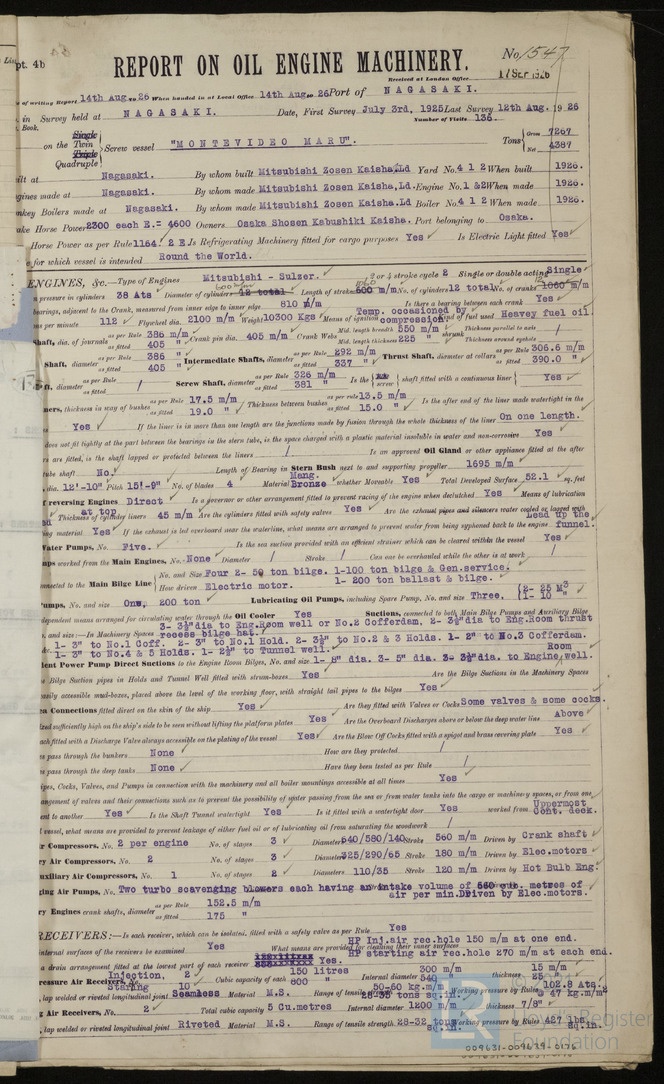 pt. 4b
REPORT ON OIL ENGINE MACHINERY.
No. 1547
Received at London Office 17 SEP 1926
of writing Report 14th Aug. 1926 When handed in at Local Office 14th Aug. 1926 Port of NAGASAKI.
in Survey held at NAGASAKI. Date, First Survey July 3rd, 1925 Last Survey 12th Aug. 1926
Book. Number of Visits 136
on the Single Twin Triple Quadruple Screw vessel "MONTEVIDEO MARU". Tons Gross 7267 Net 4387
ilt at Nagasaki. By whom built Mitsubishi Zosen Kaisha, Ld Yard No. 412 When built 1926.
gines made at Nagasaki. By whom made Mitsubishi Zosen Kaisha, Ld. Engine No. 1 &2 When made 1926.
nkey Boilers made at Nagasaki. By whom made Mitsubishi Zosen Kaisha, Ld Boiler No. 412 When made 1926.
ake Horse Power 2300 each E.= 4600 Owners Osaka Shosen Kabushiki Kaisha. Port belonging to Osaka.
Horse Power as per Rule 1164. 2 E Is Refrigerating Machinery fitted for cargo purposes Yes Is Electric Light fitted Yes
e for which vessel is intended Round the World.
ENGINES, &c.—Type of Engines Mitsubishi - Sulzer. 2 or 4 stroke cycle 2 Single or double acting Single
n pressure in cylinders 38 Ats Diameter of cylinders 600 m/m 12 total Length of stroke 1060 600 m/m No. of cylinders 12 total No. of cranks 12 1060 m/m
bearings, adjacent to the Crank, measured from inner edge to inner edge 810 m/m Is there a bearing between each crank Yes
ns per minute 112 Flywheel dia. 2100 m/m Weight 10300 Kgs Means of ignition Temp. occasioned by compression Kind of fuel used Heavey fuel oil
Shaft, dia. of journals as per Rule 386 m/m as fitted 405 " Crank pin dia. 405 m/m Crank Webs Mid. length breadth 550 m/m Mid. length thickness 225 " shrunk Thickness parallel to axis / Thickness around eyehole
Shaft, diameter as per Rule 386 " as fitted 405 " Intermediate Shafts, diameter as per Rule 292 m/m as fitted 337 " Thrust Shaft, diameter at collars as per Rule 306.6 m/m as fitted 390.0 "
ft, diameter as per Rule / as fitted Screw Shaft, diameter as per Rule 326 m/m as fitted 381 " Is the screw shaft fitted with a continuous liner Yes
ners, thickness in way of bushes as per Rule 17.5 m/m as fitted 19.0 " Thickness between bushes as per rule 13.5 m/m as fitted 15.0 " Is the after end of the liner made watertight in the
Yes If the liner is in more than one length are the junctions made by fusion through the whole thickness of the liner On one length.
does not fit tightly at the part between the bearings in the stern tube, is the space charged with a plastic material insoluble in water and non-corrosive Yes
rs are fitted, is the shaft lapped or protected between the liners / Is an approved Oil Gland or other appliance fitted at the after
tube shaft No. Length of Bearing in Stern Bush next to and supporting propeller 1695 m/m
dia. 12'-10" Pitch 15'-9" No. of blades 4 Material Mang. Bronze whether Moveable Yes Total Developed Surface 52.1 sq. feet
f reversing Engines Direct Is a governor or other arrangement fitted to prevent racing of the engine when declutched Yes Means of lubrication
ed at top Thickness of cylinder liners 45 m/m Are the cylinders fitted with safety valves Yes Are the exhaust pipes and silencers water cooled or lagged with Lead up the
ng material Yes If the exhaust is led overboard near the waterline, what means are arranged to prevent water from being syphoned back to the engine funnel.
Water Pumps, No. Five. Is the sea suction provided with an efficient strainer which can be cleared within the vessel Yes
mps worked from the Main Engines, No. None Diameter / Stroke / Can one be overhauled while the other is at work /
onnected to the Main Bilge Line No. and Size Four 2- 50 ton bilge. 1-100 ton bilge & Gen.service.
How driven Electric motor. 1- 200 ton ballast & bilge.
Pumps, No. and size One, 200 ton Lubricating Oil Pumps, including Spare Pump, No. and size Three. (2- 25 M3 (1- 10 "
dependent means arranged for circulating water through the Oil Cooler Yes Suctions, connected to both Main Bilge Pumps and Auxiliary Bilge
s, and size:—In Machinery Spaces 3- 3½"dia to Eng.Room well or No.2 Cofferdam. 2- 3½"dia to Eng.Room thrust recess bilge hat.
1- 3" to No.1 Coff. 2- 3" to No.1 Hold. 2- 3½" to No.2 & 3 Holds. 1- 2" to No.3 Cofferdam.
1- 3" to No.4 & 5 Holds. 1- 2½" to Tunnel well. Room
ent Power Pump Direct Suctions to the Engine Room Bilges, No. and size 1- 8" dia. 3- 5" dia. 3- 3½"dia. to Engine well.
e Bilge Suction pipes in Holds and Tunnel Well fitted with strum-boxes Yes Are the Bilge Suctions in the Machinery Spaces
easily accessible mud-boxes, placed above the level of the working floor, with straight tail pipes to the bilges Yes
ea Connections fitted direct on the skin of the ship Yes Are they fitted with Valves or Cocks Some valves & some cocks.
ixed sufficiently high on the ship's side to be seen without lifting the platform plates Yes Are the Overboard Discharges above or below the deep water line Above
each fitted with a Discharge Valve always accessible on the plating of the vessel Yes Are the Blow Off Cocks fitted with a spigot and brass covering plate Yes
es pass through the bunkers None How are they protected /
es pass through the deep tanks None Have they been tested as per Rule /
ipes, Cocks, Valves, and Pumps in connection with the machinery and all boiler mountings accessible at all times Yes
angement of valves and their connections such as to prevent the possibility of water passing from the sea or from water tanks into the cargo or machinery spaces, or from one
ent to another Yes Is the Shaft Tunnel watertight Yes Is it fitted with a watertight door Yes worked from Uppermost Cont. deck.
l vessel, what means are provided to prevent leakage of either fuel oil or of lubricating oil from saturating the woodwork /
r Compressors, No. 2 per engine No. of stages 3 Diameters 640/580/140 Stroke 560 m/m Driven by Crank shaft
ry Air Compressors, No. 2 No. of stages 3 Diameters 325/290/65 Stroke 180 m/m Driven by Elec.motors
uxiliary Air Compressors, No. 1 No. of stages 2 Diameters 110/35 Stroke 120 m/m Driven by Hot Bulb Eng.
ging Air Pumps, No. Two turbo scavenging blowers each having an intake volume of 560 cub. metres of air per min. Driven by Elec.motors.
ry Engines crank shafts, diameter as per Rule 152.5 m/m as fitted 175 "
RECEIVERS:—Is each receiver, which can be isolated, fitted with a safety valve as per Rule Yes
internal surfaces of the receivers be examined Yes What means are provided for cleaning their inner surfaces HP Inj.air rec.hole 150 m/m at one end.
HP starting air rec.hole 270 m/m at each end.
a drain arrangement fitted at the lowest part of each receiver Yes.
ressure Air Receivers, No. Injection, 2 Staring 10 Cubic capacity of each 150 litres 800 " Internal diameter 300 m/m 540 thickness 15 m/m 25 "
, lap welded or riveted longitudinal joint Seamless Material M.S. Range of tensile 50-60 kg.m/ 28-35 tons sq.in. Working pressure by Rules 102.8 Ats. 47 kg.m/m2
g Air Receivers, No. 2 Total cubic capacity 5 Cu.metres Internal diameter 1200 m/m thickness 7/8"
, lap welded or riveted longitudinal joint Riveted Material M.S. Range of tensile strength 28-32 tons sq.in. Working pressure by Rules 427 lbs. sq.in.
Lloyd's Register
Foundation
009631-009639-0176